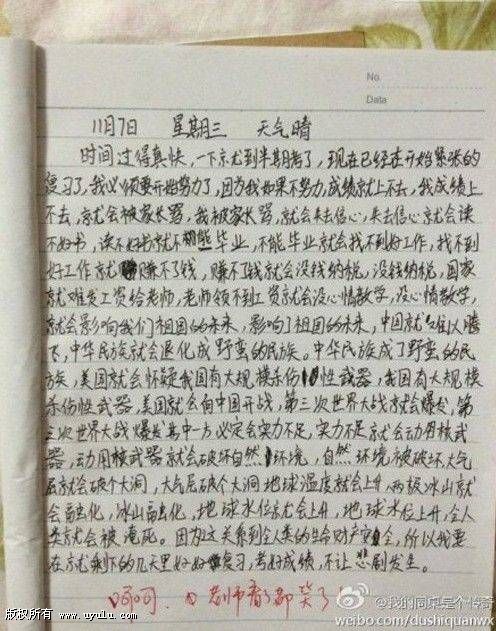 No.
Data
11月7日 星期三 天气晴
时间过得真快,一下就到半期考了,现在已经在开始紧张的
复习了,我必须要开始努力了,因为我如果不努力,成绩就上不去,我成绩上
不去,就会被家长骂,我被家长骂,就会失去信心,失去信心就会读
不好书,读不好书就不能毕业,不能毕业就会找不到好工作,找不到
好工作就赚不了钱,赚不了钱就会没钱纳税,没钱纳税,国家
就难发工资给老师,老师领不到工资就会没心情教学,没心情教学,
就会影响我们祖国的未来,影响了祖国的未来,中国就难以腾
飞,中华民族就会退化成野蛮的民族。中华民族成了野蛮的民
族,美国就会怀疑我国有大规模杀伤性武器,我国有大规模
杀伤性武器,美国就会向中国开战,第三次世界大战就会爆发,第
三次世界大战爆发其中一方必定会实力不足,实力不足就会动用核武
器,动用核武器就会破坏自然环境,自然环境被破坏大气
层就会破个大洞,大气层破个大洞地球温度就会上升,两极冰山就
会融化,冰山融化,地球水位就会上升,地球水位上升,全人
类就会被淹死。因为这关系到全人类的生命财产安全,所以我要
在就剩下的几天里好好复习,考好成绩,不让悲剧发生。
呵呵, 老师看了都笑了
版权所有 www.uyulu.com
@我的同桌是个传奇
weibo.com/dushiquanwx